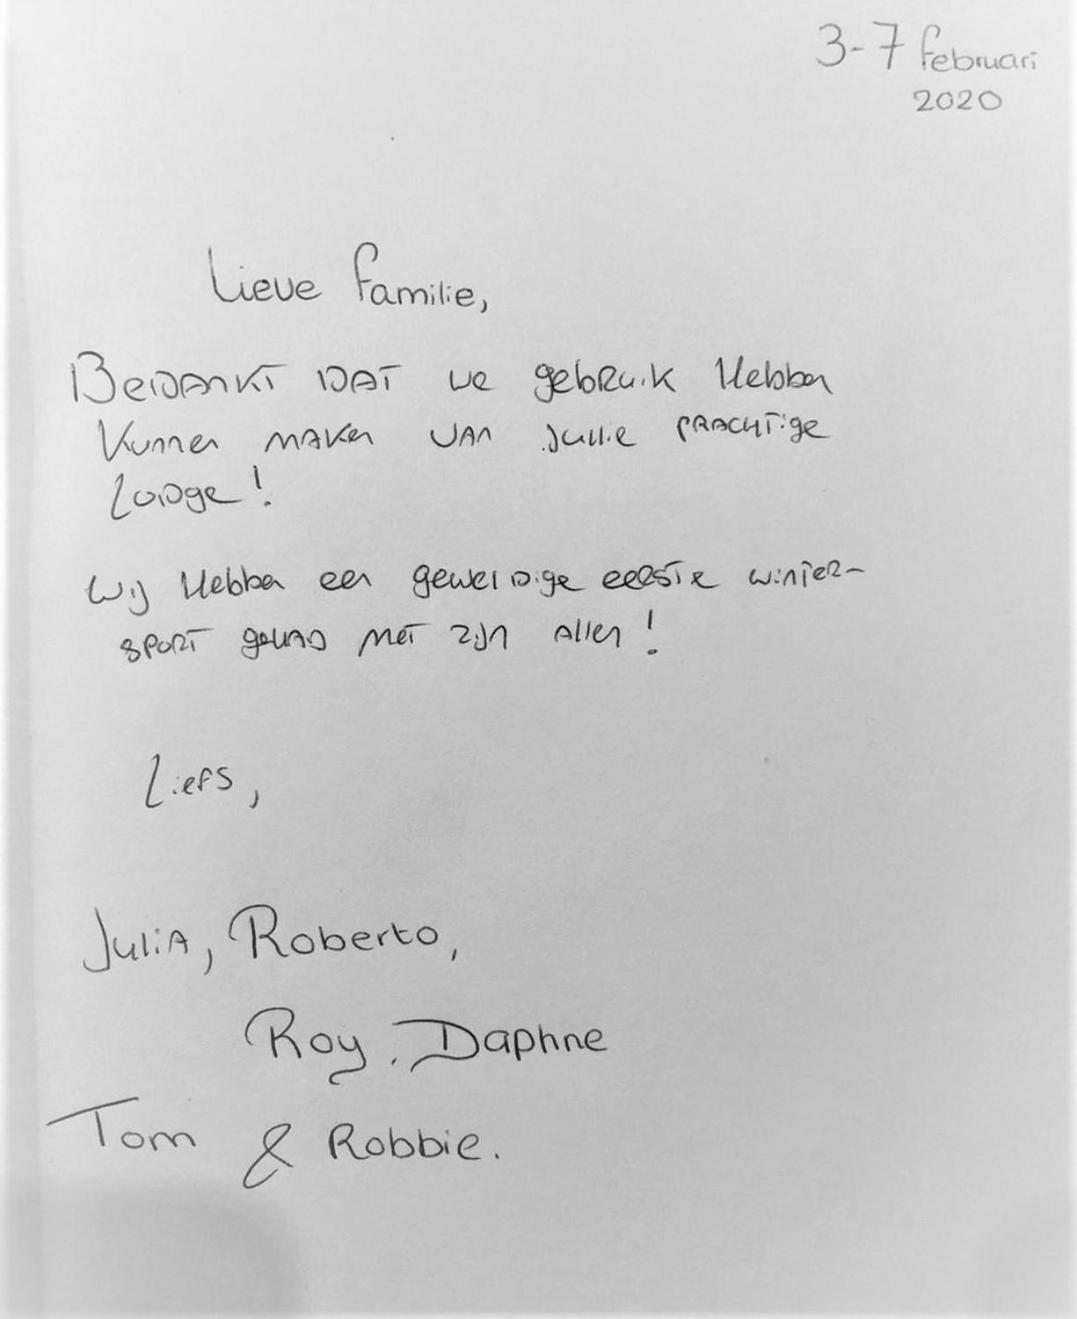 3-7 februari
2020
Lieve familie,
Bedankt dat we gebruik hebben
kunnen maken van jullie prachtige
Lodge!
Wij hebben een geweldige eerste winter-
sport gehad met zijn allen!
Liefs,
Julia, Roberto,
Roy, Daphne
Tom & Robbie.